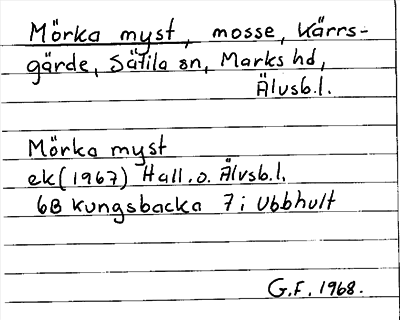 Mörka myst, mosse, Kärrs-
gärde, Sätila sn, Marks hd,
Älvsb.l.
Mörka myst
ek(1967) Hall.o. Älvsb.l.
6B Kungsbacka 7i Ubbhult
G.F. 1968.